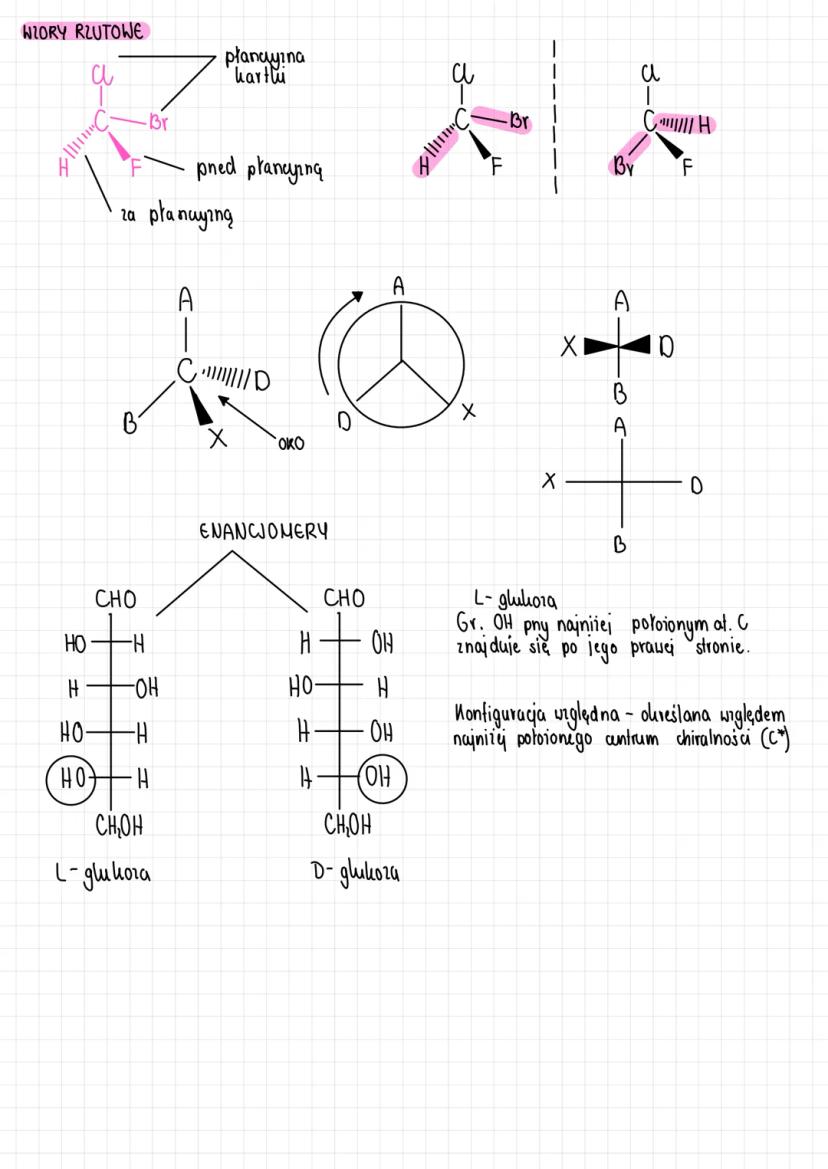 WZORY RZUTOWE
Cl
płaszczyzna
kartki
C
Br
H
F
przed płaszczyzną
za płaszczyzną
Cl
C
Br
H
F
Cl
C
H
Br
F
A
C
D
B
X
OKO
A
D
X
A
X
D
B
A
X
D
B
ENANCJOMERY
CHO
HO H
H OH
HO H
HO H
CH₂OH
L- glukoza
CHO
H OH
HO H
H OH
H OH
CH₂OH
D- glukoza
L- glukoza
Gr. OH przy najniżej położonym at. C
znajduje się po jego prawej stronie.
Konfiguracja względna - określana względem
najniżej położonego centrum chiralności (C*)